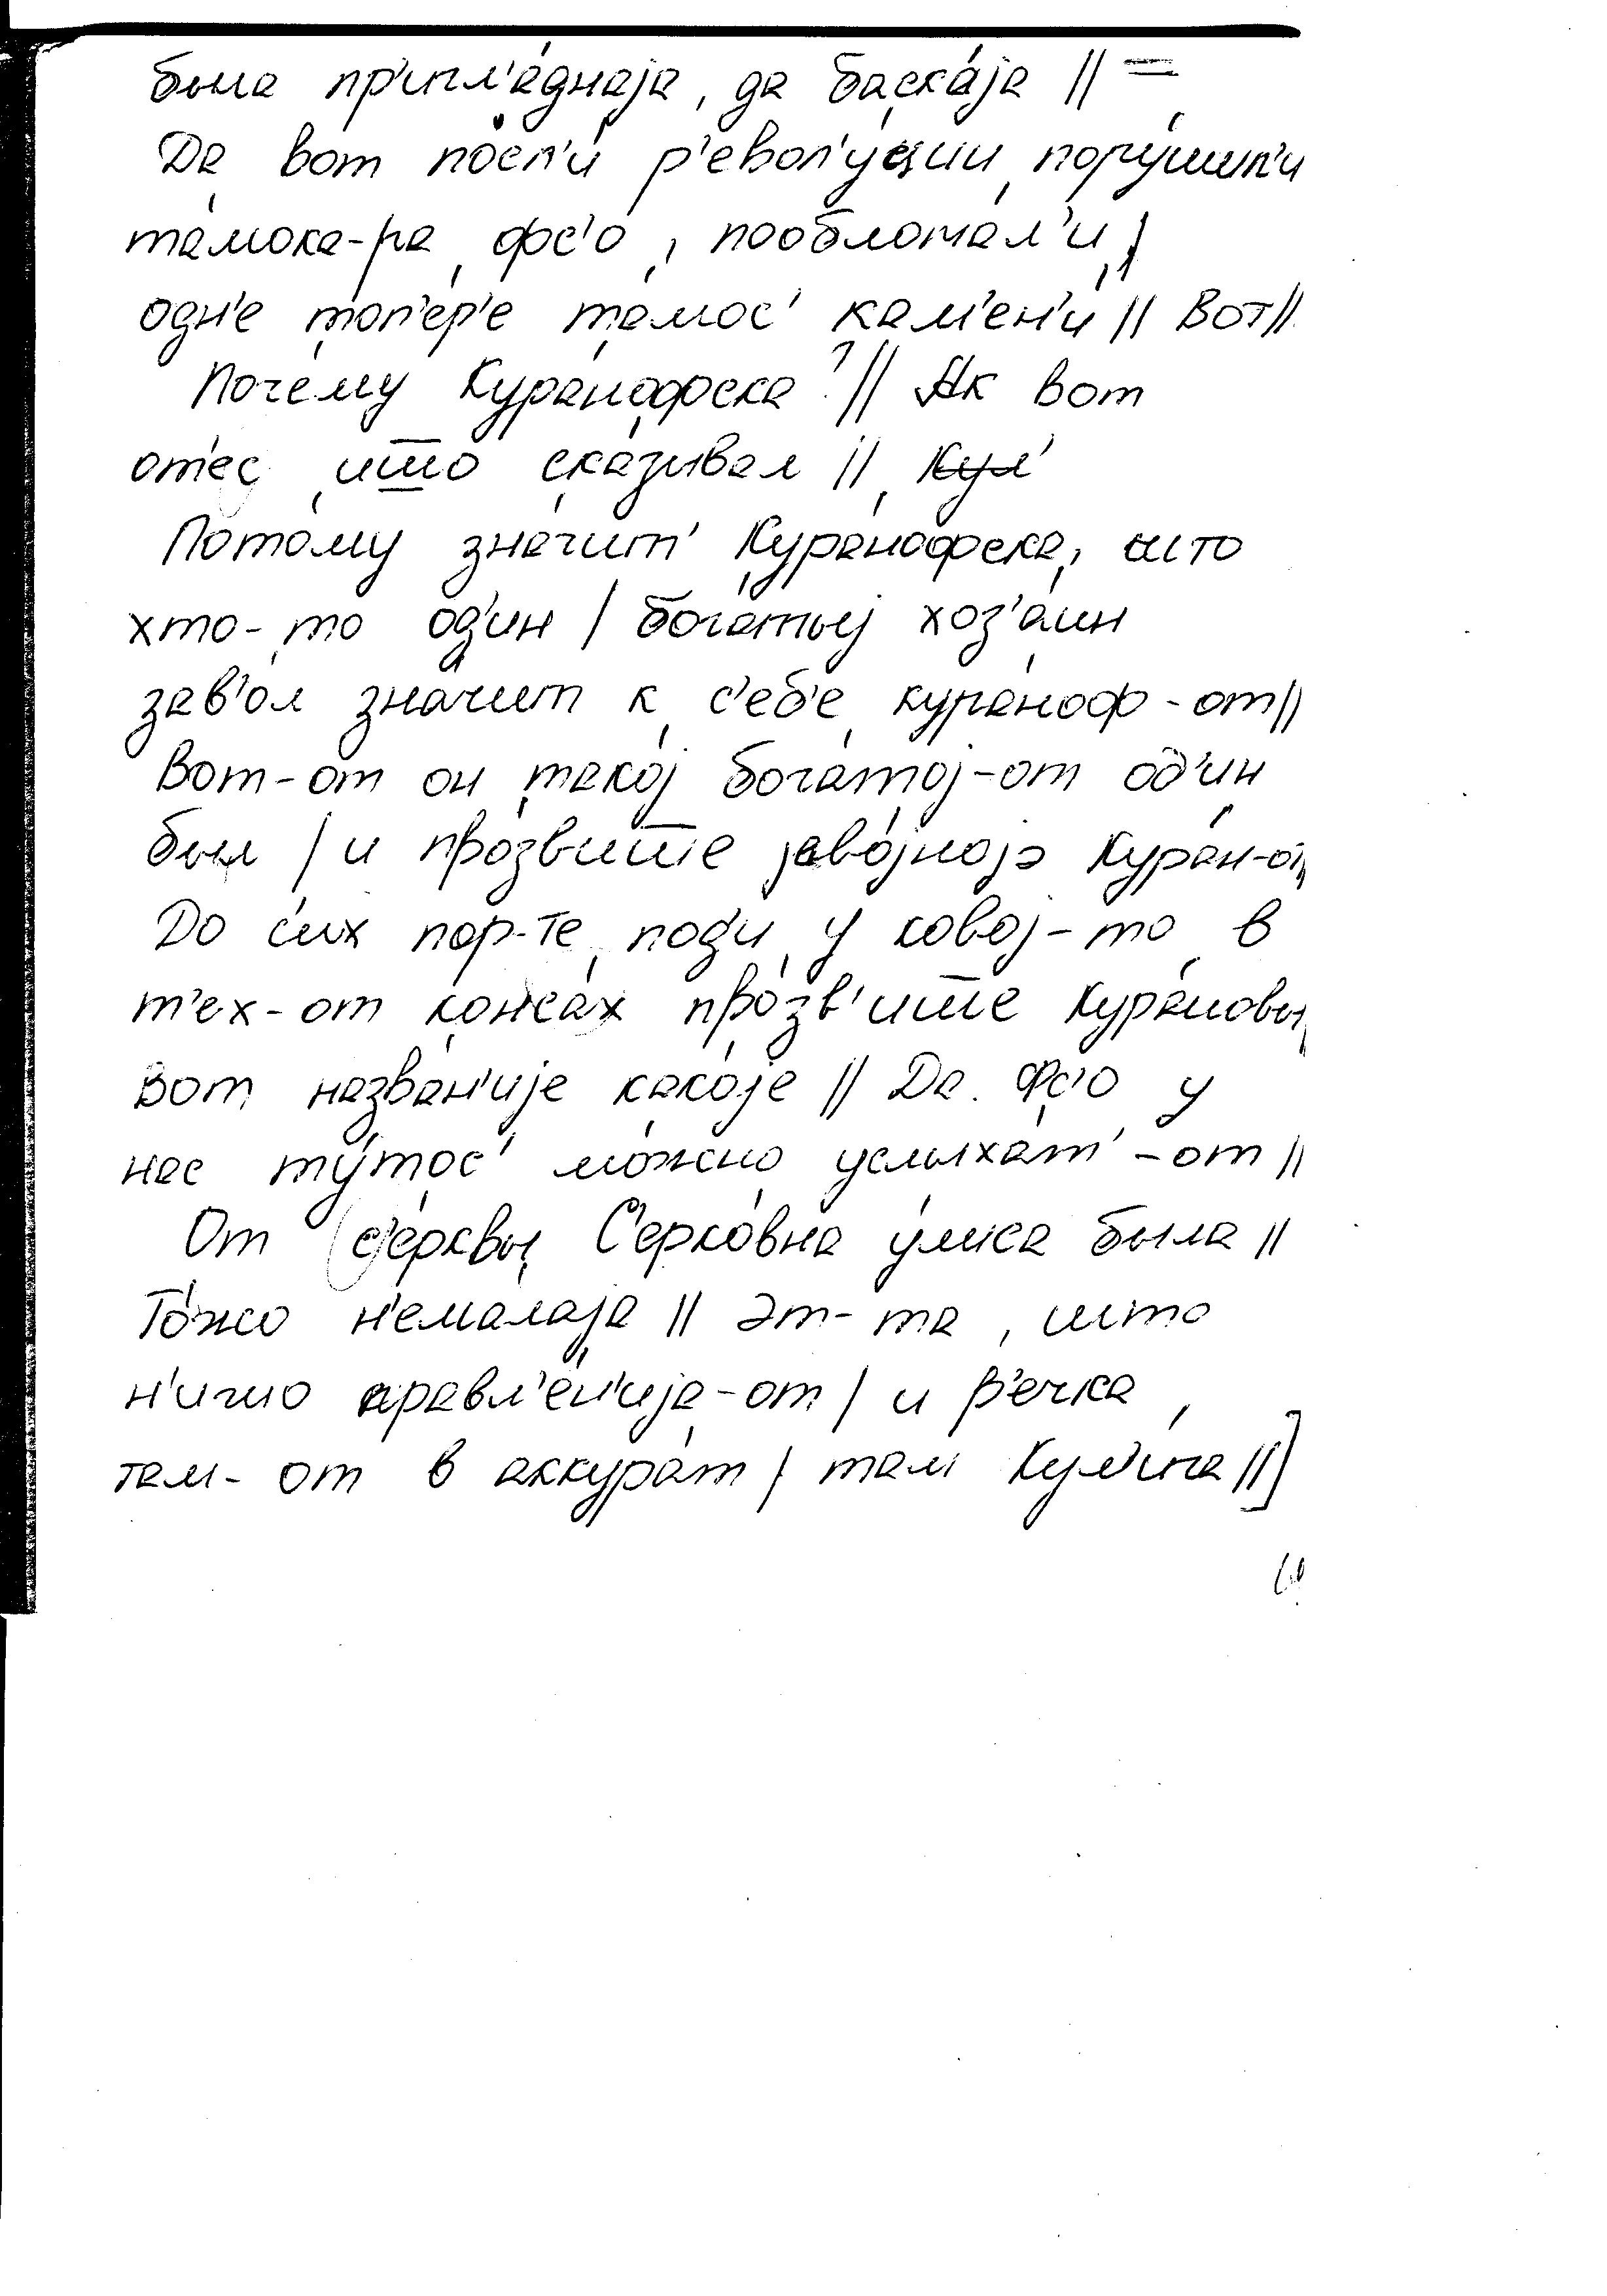 была пр'игл'а́днаја, да баска́ја || =
Да вот по́сл'и р'евол'у́ции пору́шил'и
та́мока-ра фс'о, пооблома́л'и,|
одн'е́ топ'ер'е та́мос' ка́м'ен'и || Вот ||
Поче́му Кура́нофска? || Ак вот
от'ес што ска́зывал || ~~Кул'~~
Пото́му зна́чит' Кура́нофска, што
хто-то од'ин | бога́тыј хоз'а́ин
зав'о́л зна́чит к с'еб'е́ кура́ноф-от ||
Вот-от он тако́ј бога́тој-от од'ин
был | и про́звишше јаво́јноја Кура́н-от
До сих пор-те поди у ково́ј-то в
т'ех-от конса́х про́зв'ишше Кура́новы
вот назва́н'ије како́је || Да. Фс'о у
нас ту́тос' мо́жно услыха́т'-от ||
От с'е́рквы С'ерко́вна у́лиса была ||
То́жо н'ема́лаја || Эт-та, што
н'и́жио правл'е́н'ија-от | и р'е́чка
там-от в аккура́т | там Кул'и́га ||]